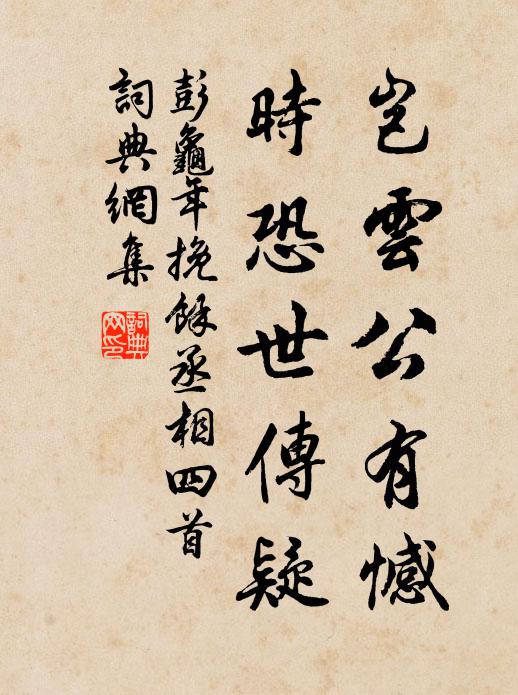 豈雲公有憾
時恐世傳疑
彭龜年挽餘丞相四首
詞典網集
詞典網印